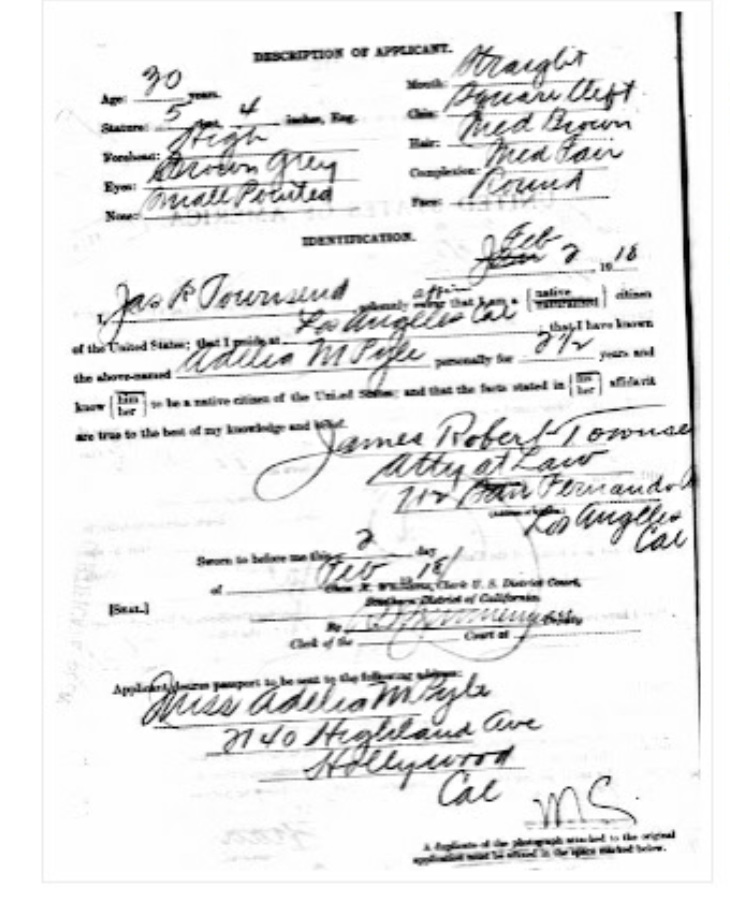 DESCRIPTION OF APPLICANT.
Age: 30 years.
Mouth: Straight
Stature: 5 feet, 4 inches, Eng.
Chin: Square Cleft
Forehead: High
Hair: Med Brown
Eyes: Brown Grey
Complexion: Med Fair
Nose: Small Pointed
Face: Round
IDENTIFICATION.
Feb 2, 1918
I, Jas R Townsend, solemnly affirm that I am a { native } citizen
of the United States; that I reside at Los Angeles Cal; that I have known
the above-named Adelia M Pyle personally for 2 1/2 years and
know { him her } to be a native citizen of the United States; and that the facts stated in { his her } affidavit
are true to the best of my knowledge and belief.
James Robert Townse
Atty at Law
712 San Fernando
Los Angeles
Cal
Sworn to before me this 2 day
of Feb 1918
[SEAL.]
Clerk U. S. District Court,
Southern District of California.
By Deputy
Clerk of the Court at
Applicant desires passport to be sent to the following address:
Miss Adelia M Pyle
2140 Highland Ave
Hollywood
Cal
M S
A duplicate of the photograph attached to the original
application must be affixed in the space marked below.